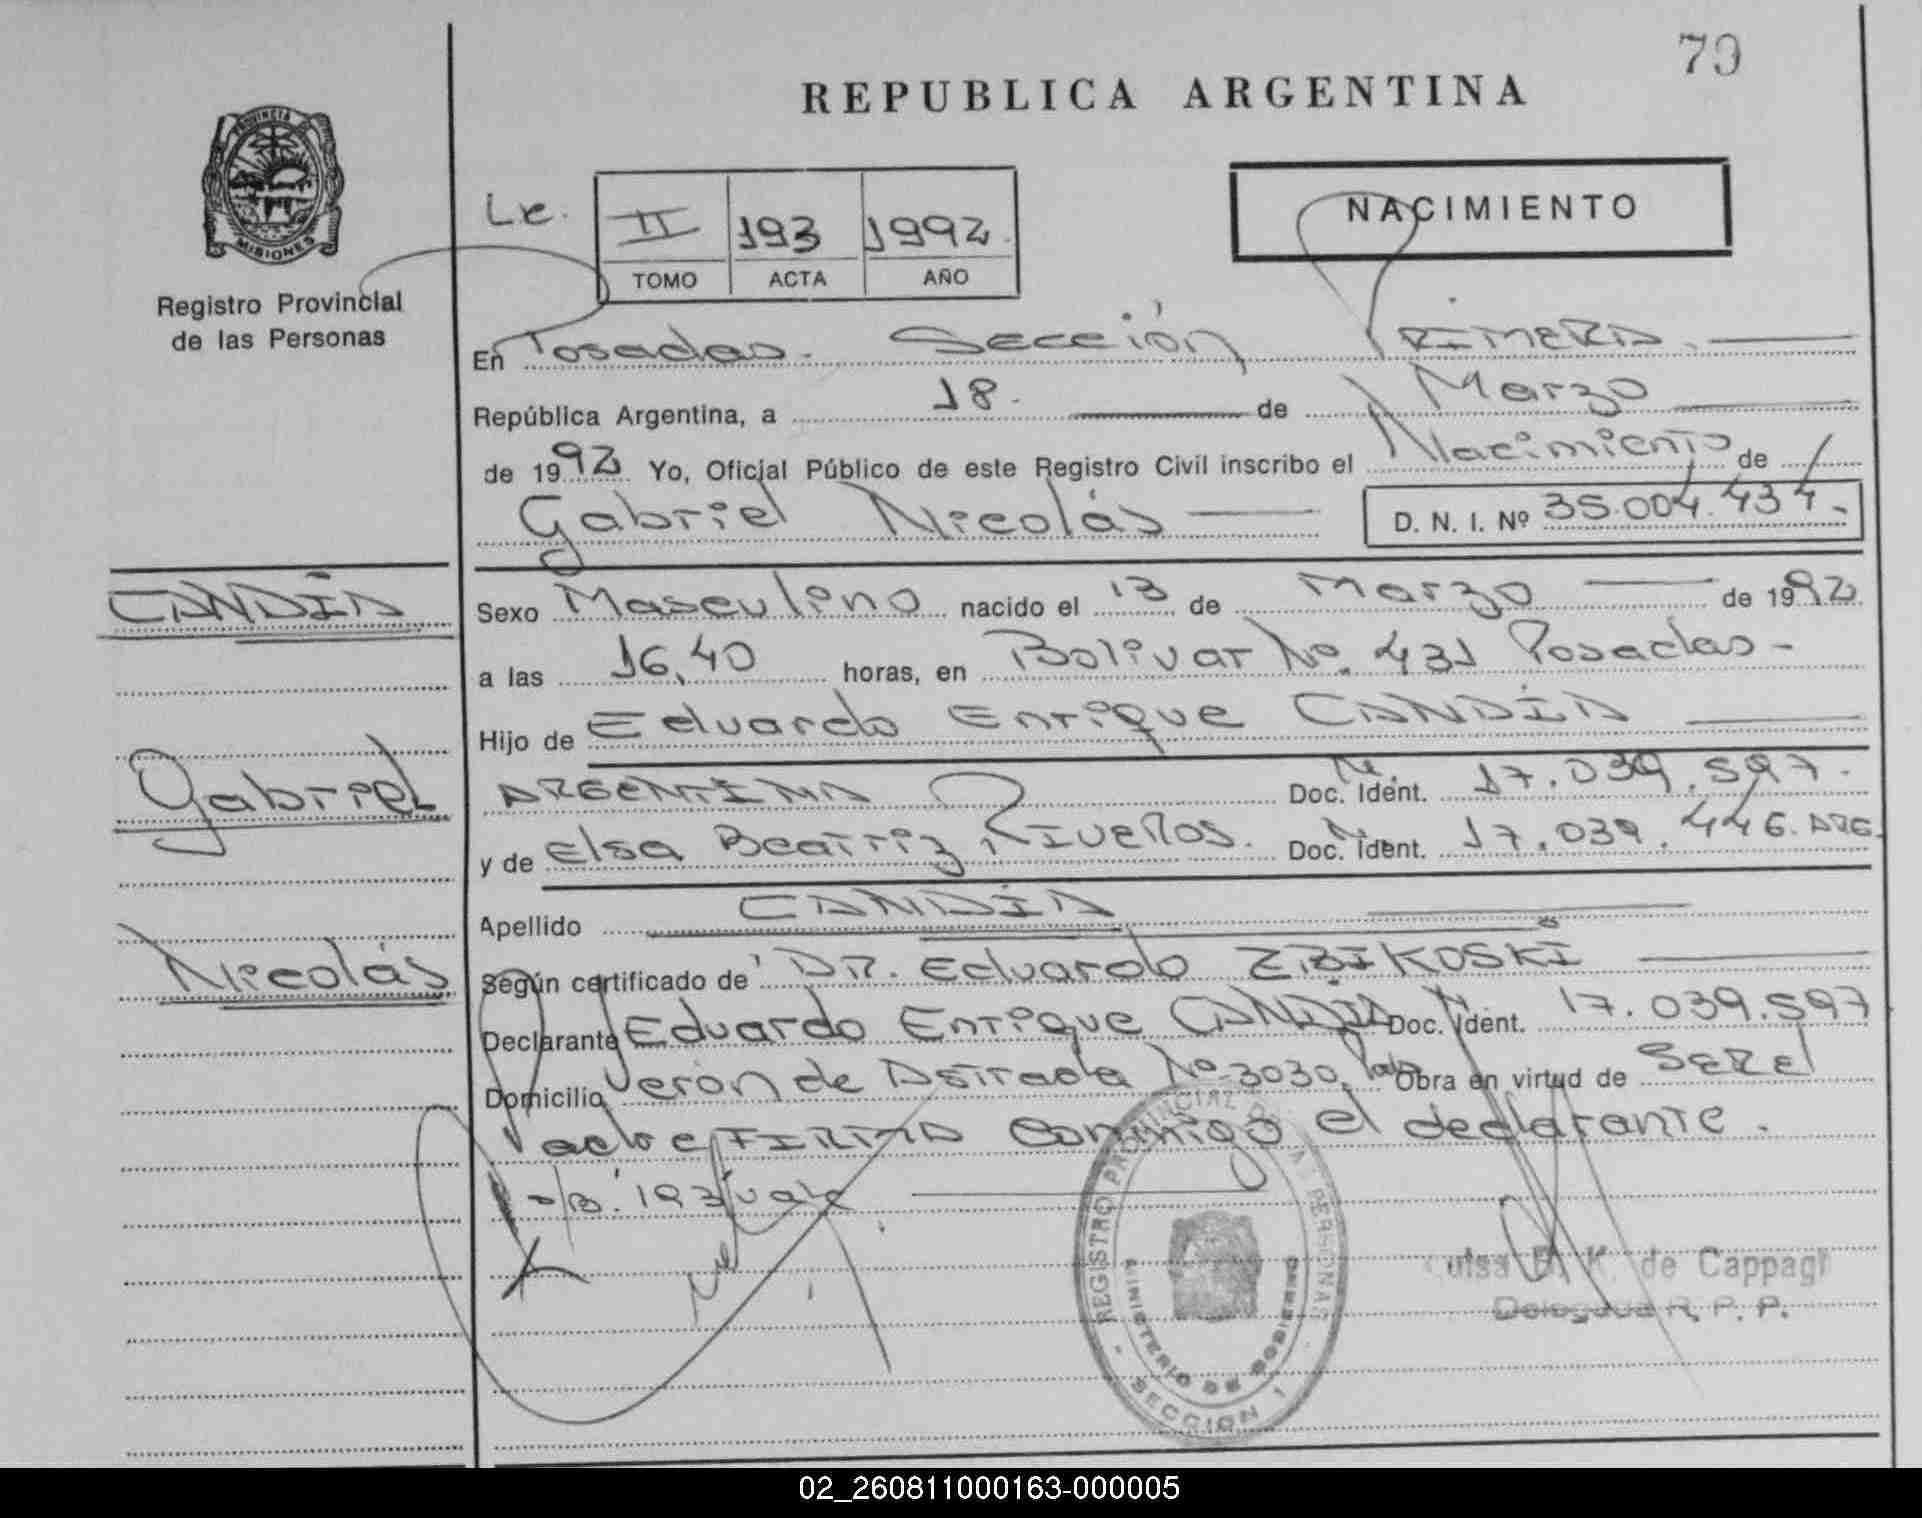 79
REPUBLICA ARGENTINA
PROVINCIA DE
MISIONES
Registro Provincial
de las Personas
NACIMIENTO
II 193 1992
TOMO ACTA AÑO
En Posadas. Sección PRIMERA.
República Argentina, a 18. de Marzo
de 1992 Yo, Oficial Público de este Registro Civil inscribo el Nacimiento de
Gabriel Nicolás D. N. I. Nº 35.004.434.
CANDÍA
Sexo Masculino nacido el 13 de Marzo de 1992
a las 16,40 horas, en Bolivar No. 431 Posadas-
Hijo de Eduardo Enrique CANDÍA
Gabriel
ARGENTINA Doc. Ident. 17.039.597.
y de Elsa Beatriz RIVEROS. Doc. Ident. 17.039.446. ARG.
Apellido CANDÍA
Nicolás
Según certificado de DR. Eduardo ZIBIKOSKI
Declarante Eduardo Enrique CANDIA Doc. Ident. 17.039.597
Domicilio Verón de Astrada No 3030, Pdas Obra en virtud de SER el
Padre FIRMA conmigo el declarante.
193 vale
REGISTRO PROVINCIAL DE LAS PERSONAS
MINISTERIO DE GOBIERNO
- SECCION 1 -
de Cappagli
Delegada R. P. P.
02_260811000163-000005